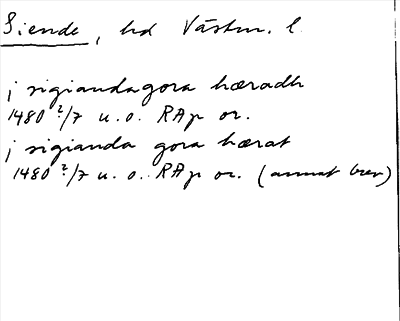 Siende, hd Västm. l.
j sigiandagora hæradh
1480 2/7 u.o. RAp or.
j sigianda gora hærat
1480 2/7 u.o. RAp or. (annat brev)